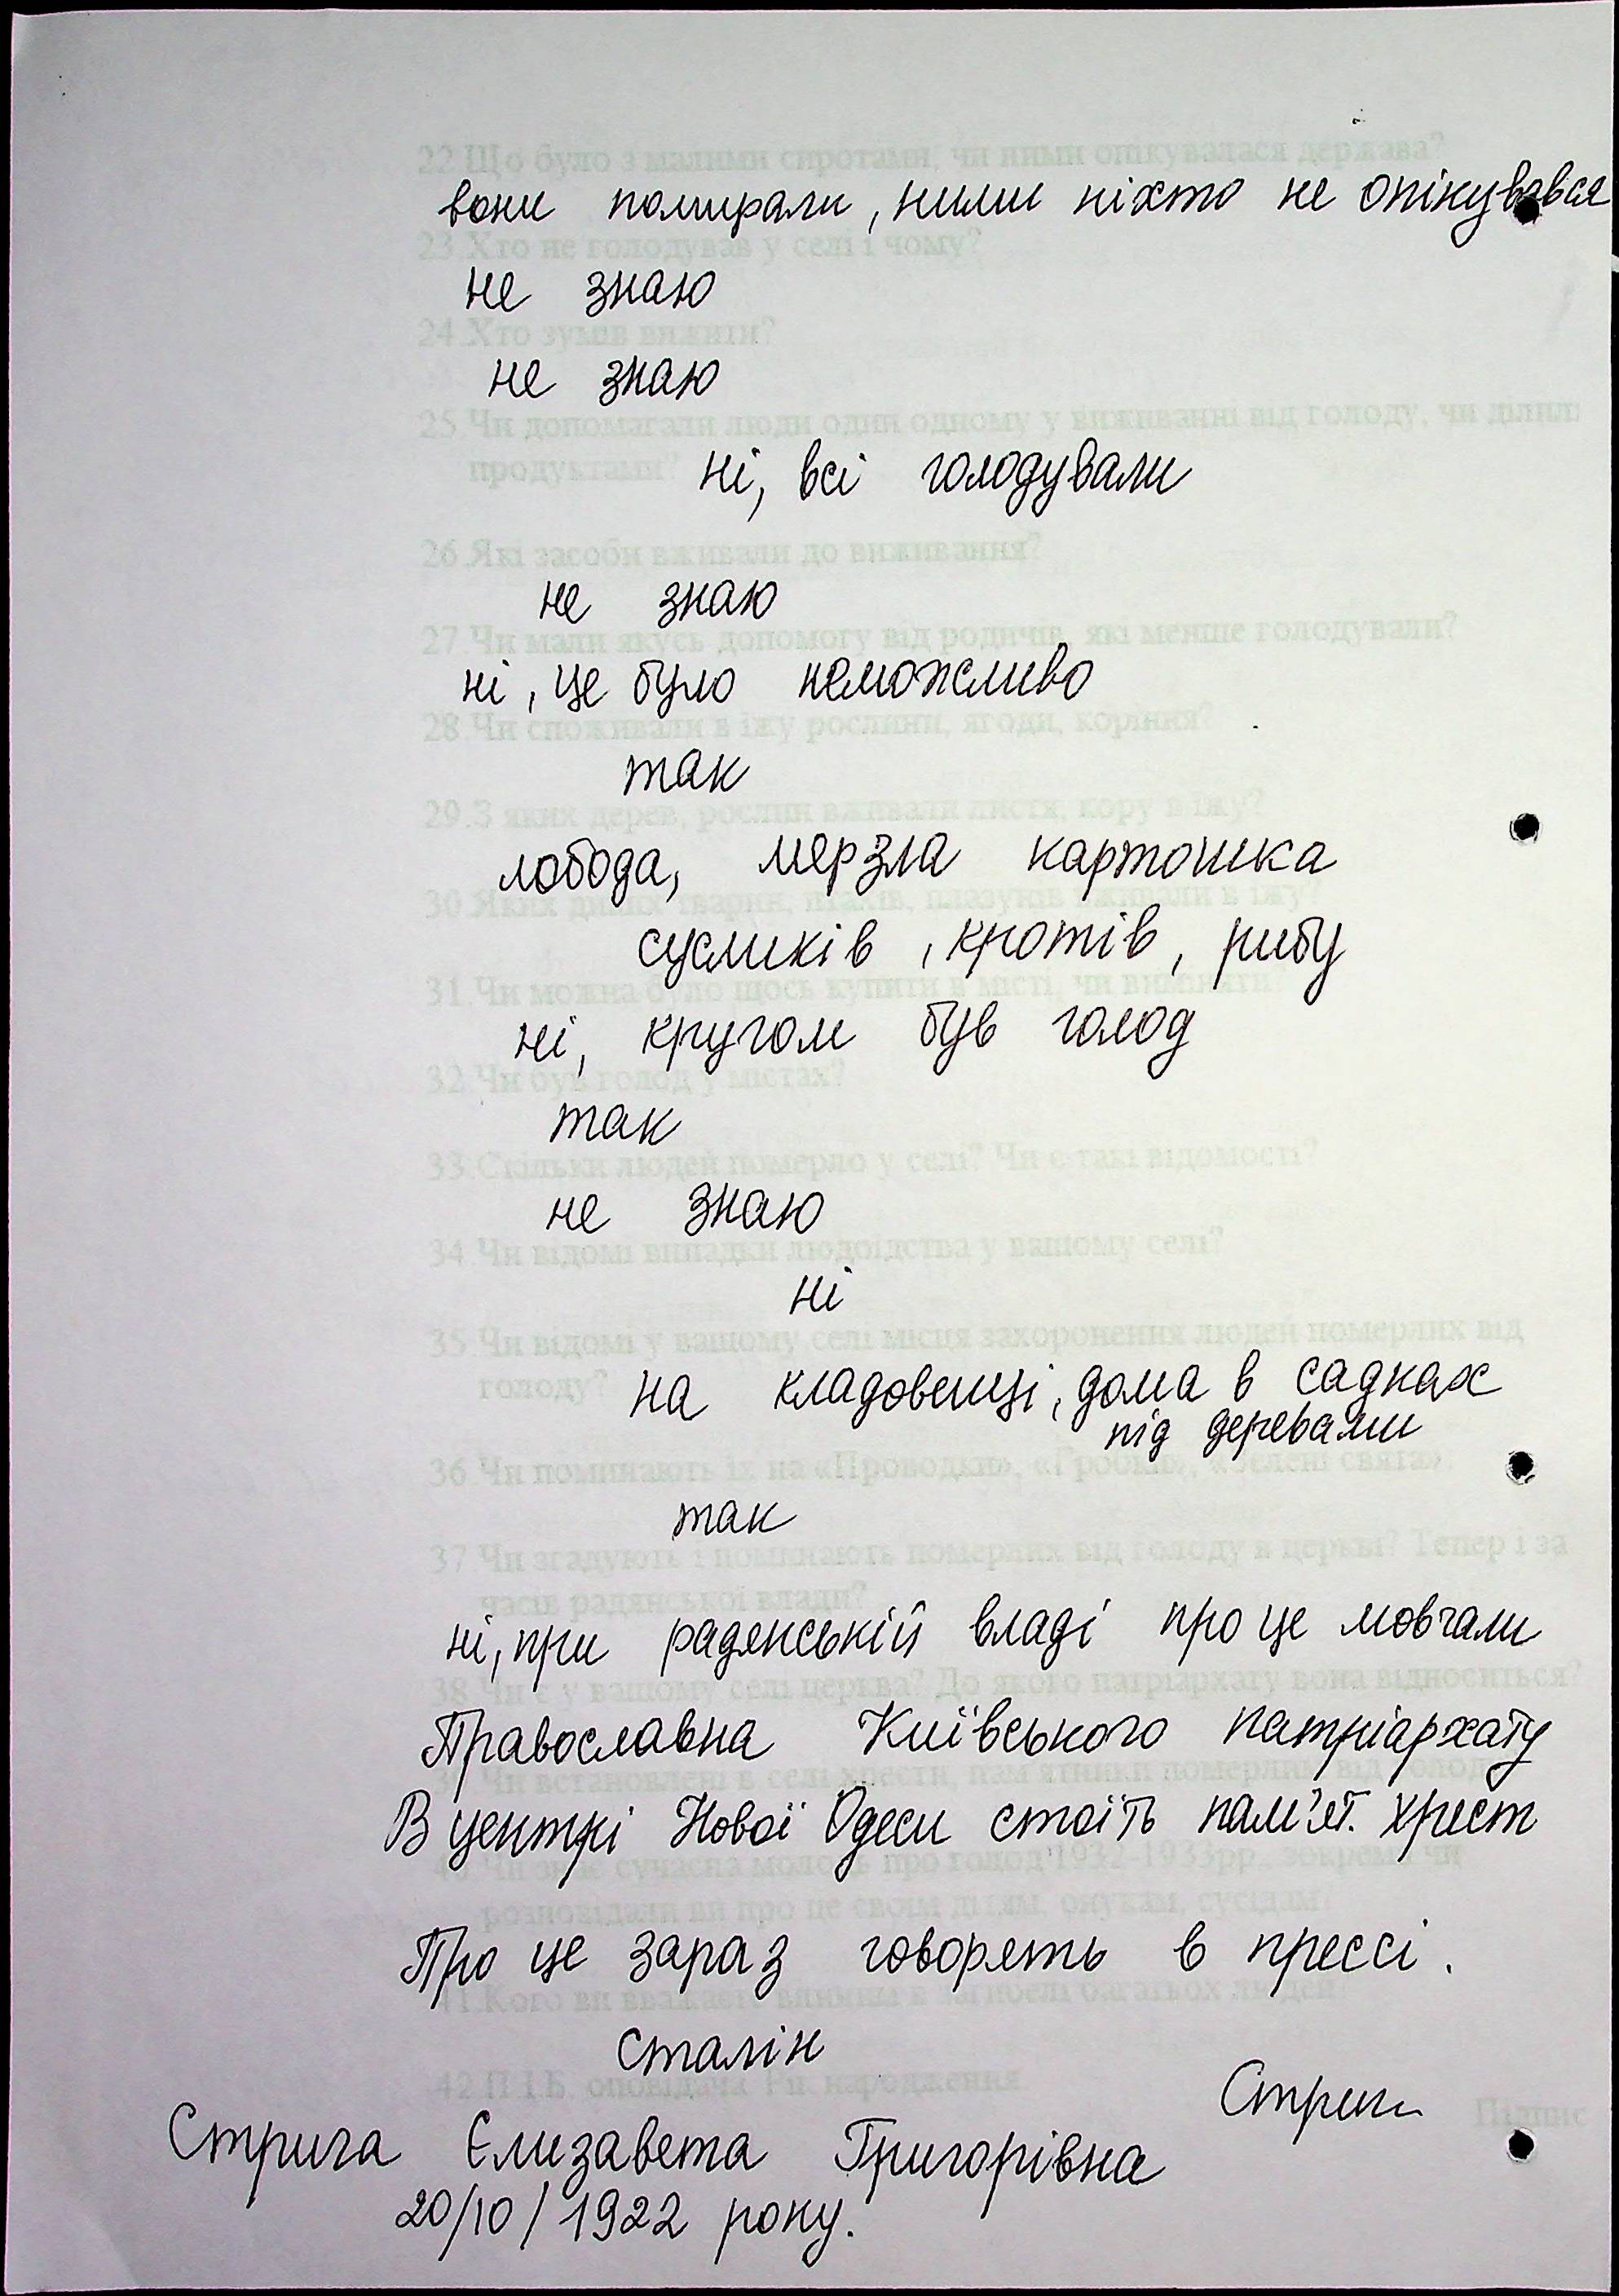 22.Що було з малими сиротами, чи ними опікувалася держава?
вони помирали, ними ніхто не опікувався
23.Хто не голодував у селі і чому?
не знаю
24.Хто зумів вижити?
не знаю
25.Чи допомагали люди один одному у виживанні від голоду, чи ділились
продуктами?
ні, всі голодували
26.Які засоби вживали до виживання?
не знаю
27.Чи мали якусь допомогу від родичів, які менше голодували?
ні, це було неможливо
28.Чи споживали в їжу рослини, ягоди, коріння?
так
29.З яких дерев, рослин вживали листя, кору в їжу?
лобода, мерзла картошка
30.Яких диких тварин, птахів, плазунів вживали в їжу?
сусликів, кротів, рибу
31.Чи можна було щось купити в місті, чи виміняти?
ні, кругом був голод
32.Чи був голод у містах?
так
33.Скільки людей померло у селі? Чи є такі відомості?
не знаю
34.Чи відомі випадки людоїдства у вашому селі?
ні
35.Чи відомі у вашому селі місця захоронення людей померлих від
голоду?
на кладовещі, дома в садках
під деревами
36.Чи поминають їх на «Проводки», «Гробки», «Зелені свята».
так
37.Чи згадують і поминають померлих від голоду в церкві? Тепер і за
часів радянської влади?
ні, при радянській владі про це мовчали
38.Чи є у вашому селі церква? До якого патріархату вона відноситься?
Православна Київського патріархату
Чи встановлені в селі хрести, пам'ятники померлим від голоду
В центрі Нової Одеси стоїть пам'ят. хрест
Чи знає сучасна молодь про голод 1932-1933рр., зокрема чи
розповідали ви про це своїм дітям, онукам, сусідам?
Про це зараз говорять в прессі.
41.Кого ви вважаєте винним в загибелі багатьох людей?
Сталін
42.П.І.Б. оповідача. Рік народження.
Підпис
Стрига Єлизавета Григорівна
20/10/1922 року.